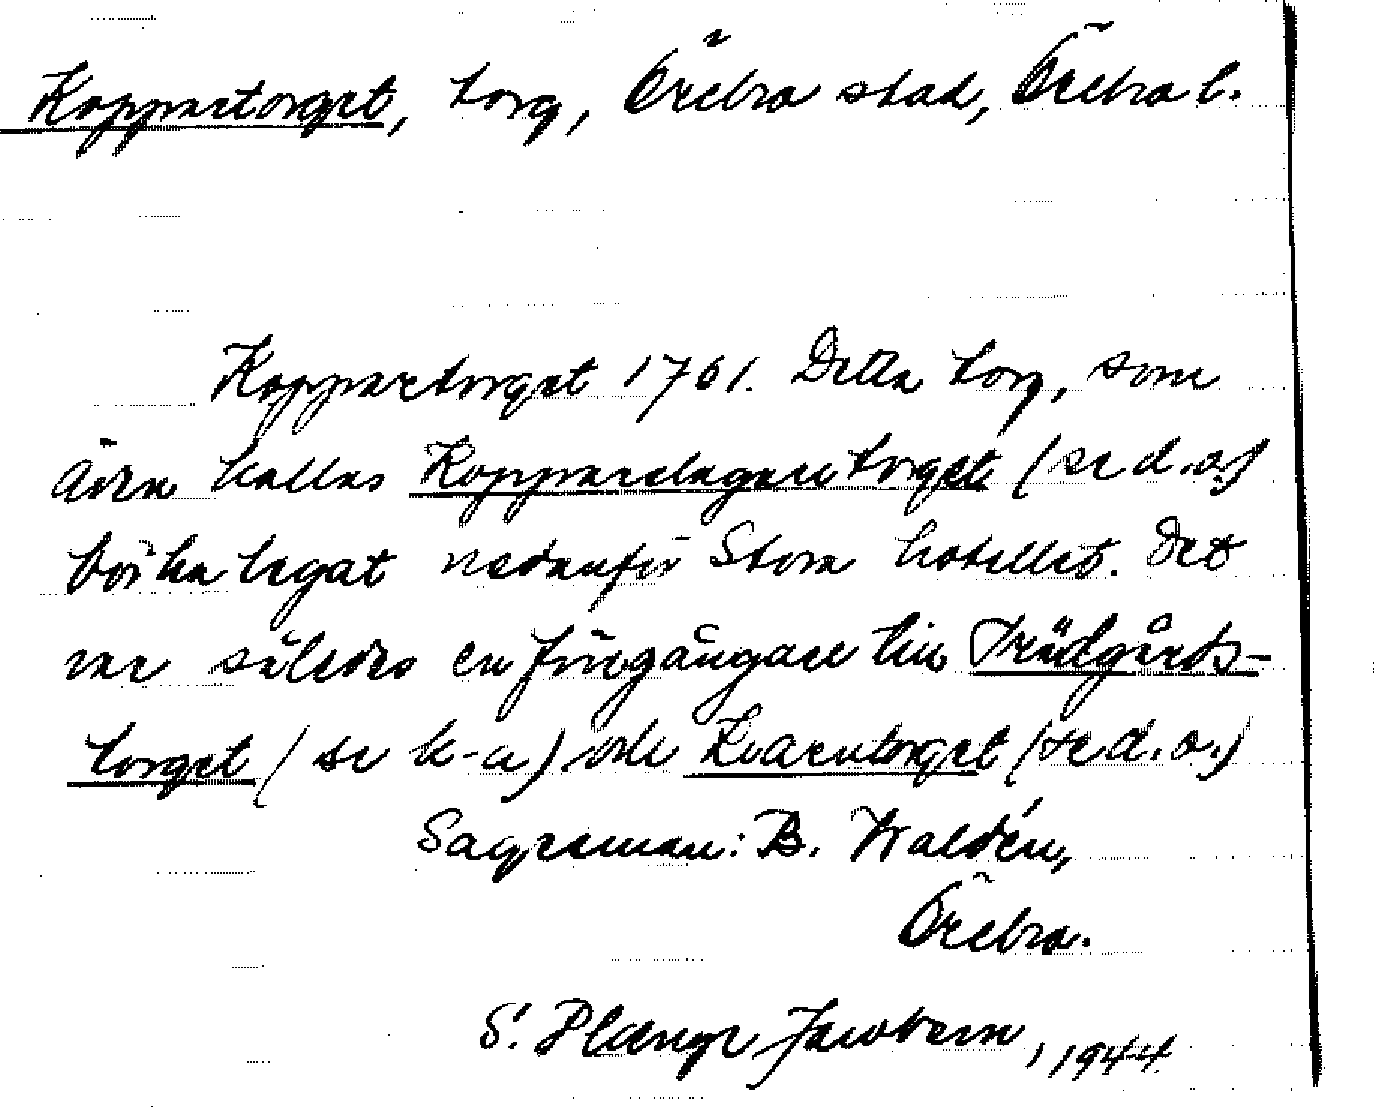 Koppartorget, torg, Örebro stad, Örebro l.
Koppartorget 1761. Detta torg, som
även kallas Kopparslagaretorget (se d.o.)
bör ha legat nedanför Stora hotellet. Det
var således en föregångare till Trädgårds-
torget (se k-a) och Kvarntorget (se d.o.)
Sagesman: B. Waldén,
Örebro.
S. Jacobson, 1944